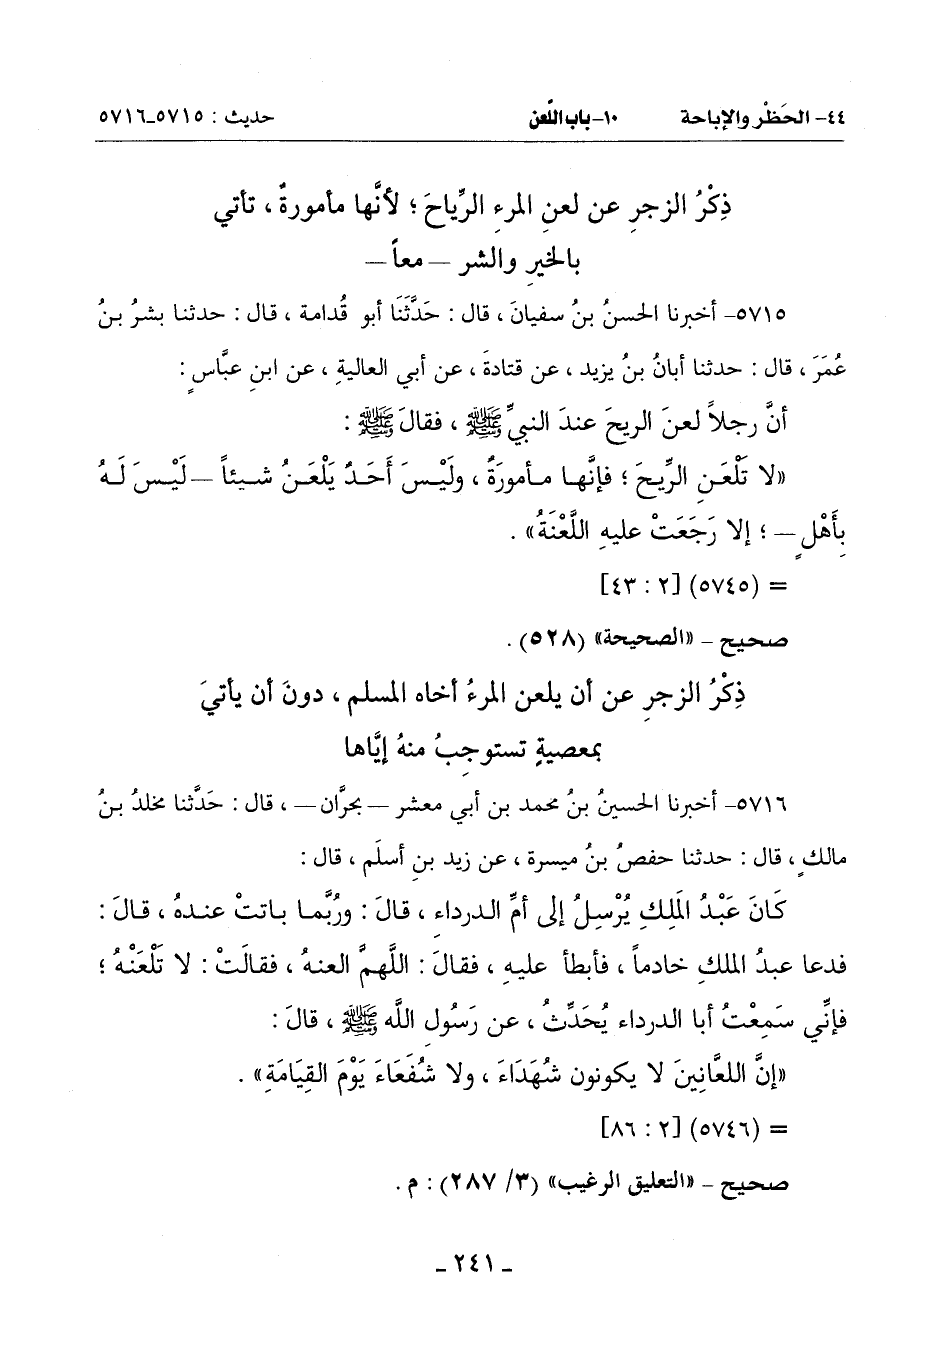 ٤٤- الحَظْر والإباحة ١٠-باب اللَّعن حديث : ٥٧١٥-٥٧١٦
ذِكْرُ الزجرِ عن لعنِ المرءِ الرِّياحَ ؛ لأنَّها مأمورةٌ ، تأتي
بالخيرِ والشر – معاً –
٥٧١٥- أخبرنا الحسنُ بنُ سفيانَ ، قال : حَدَّثَنَا أبو قُدامة ، قال : حدثنا بشرُ بنُ
عُمَرَ ، قال : حدثنا أبانُ بنُ يزيد ، عن قتادةَ ، عن أبي العاليةِ ، عن ابنِ عبَّاسٍ :
أنَّ رجلاً لعنَ الريحَ عندَ النبيِّ ﷺ ، فقالَ ﷺ :
«لا تَلْعَنِ الرِّيحَ ؛ فإنَّها مأمورَةٌ ، ولَيْسَ أَحَدٌ يَلْعَنُ شيئاً – لَيْسَ لَهُ
بِأَهْلٍ – ؛ إلا رَجَعَتْ عليهِ اللَّعْنَةُ» .
= (٥٧٤٥) [٢ : ٤٣]
صحيح - «الصحيحة» (٥٢٨) .
ذِكْرُ الزجرِ عن أن يلعن المرءُ أخاه المسلم ، دونَ أن يأتيَ
بمعصيةٍ تستوجِبُ منهُ إيَّاها
٥٧١٦- أخبرنا الحسينُ بنُ محمد بن أبي معشر – بحرَّان – ، قال : حَدَّثنا مخلدُ بنُ
مالكٍ ، قال : حدثنا حفصُ بنُ ميسرة ، عن زيد بنِ أسلَم ، قال :
كَانَ عَبْدُ المَلِكِ يُرْسِلُ إلى أمِّ الدرداءِ ، قالَ : ورُبَّما باتتْ عندهُ ، قالَ :
فدعا عبدُ الملكِ خادماً ، فأبطأ عليهِ ، فقالَ : اللَّهمَّ العنهُ ، فقالَتْ : لا تَلْعَنْهُ ؛
فإنِّي سَمِعْتُ أبا الدرداء يُحَدِّثُ ، عن رَسُولِ اللَّه ﷺ ، قالَ :
«إنَّ اللعَّانِينَ لا يكونون شُهَدَاءَ ، ولا شُفَعَاءَ يَوْمَ القِيَامَةِ» .
= (٥٧٤٦) [٢ : ٨٦]
صحيح - «التعليق الرغيب» (٣/ ٢٨٧) : م .
- ٢٤١ -